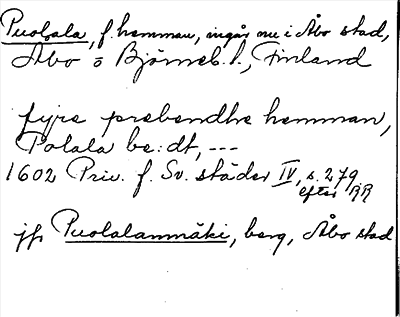 Puolala, f. hemman, ingår nu i Åbo stad,
Åbo o Björneb. l., Finland
fyre prebendhe hemman,
Polala be:dt, ---
1602 Priv. f. Sv. städer IV, s. 279
efter RR
jfr Puolalanmäki, berg, Åbo stad